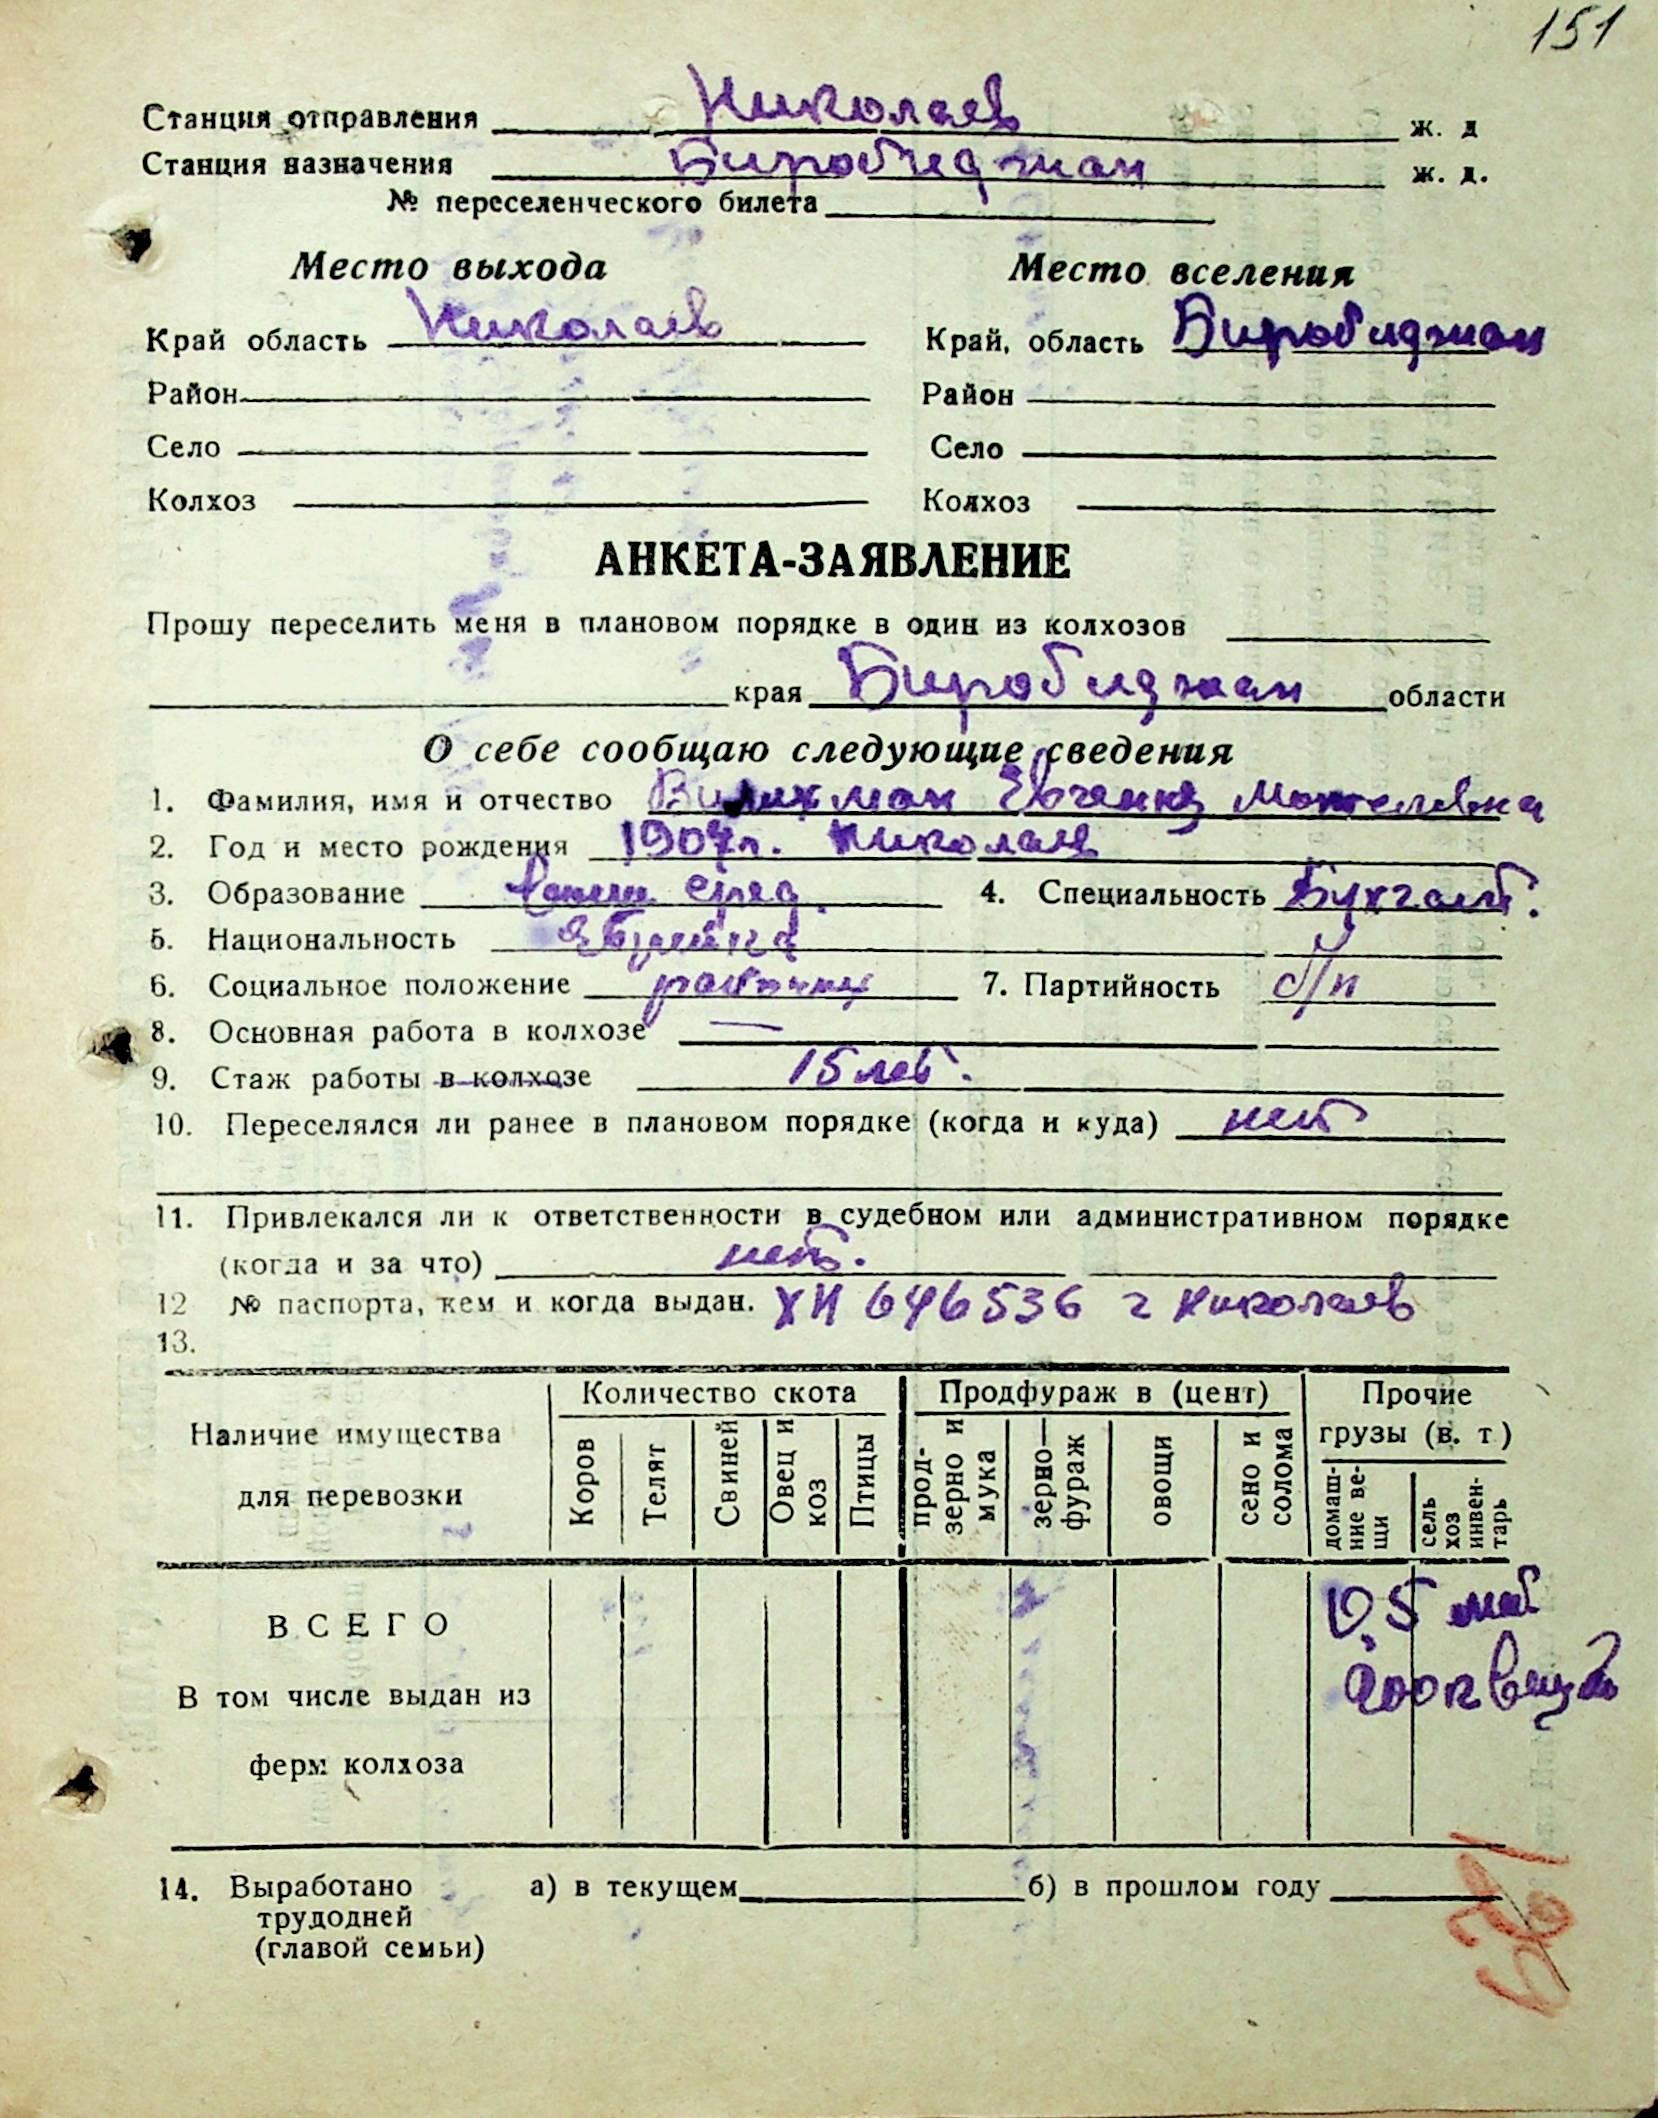 151
Станция отправления Николаев ж. д
Станция назначения Биробиджан ж. д.
№ переселенческого билета
Место выхода Место вселения
Край область Николаев Край, область Биробиджан
Район Район
Село Село
Колхоз Колхоз
АНКЕТА-ЗАЯВЛЕНИЕ
Прошу переселить меня в плановом порядке в один из колхозов
края Биробиджан области
О себе сообщаю следующие сведения
1. Фамилия, имя и отчество
2. Год и место рождения 1907г. Николаев
3. Образование сред. 4. Специальность Бухгалт.
5. Национальность Еврейка
6. Социальное положение 7. Партийность б/п
8. Основная работа в колхозе —
9. Стаж работы в колхозе 15 лет.
10. Переселялся ли ранее в плановом порядке (когда и куда) нет
11. Привлекался ли к ответственности в судебном или административном порядке
(когда и за что) нет.
12 № паспорта, кем и когда выдан. 646536 г Николаев
13.
Наличие имущества для перевозки
Количество скота
Коров
Телят
Свиней
Овец и коз
Птицы
Продфураж в (цент)
прод-зерно и мука
зерно-фураж
овощи
сено и солома
Прочие грузы (в. т)
домаш-ние ве-щи
сель хоз инвен-тарь
ВСЕГО 0,5
В том числе выдан из
ферм колхоза
14. Выработано а) в текущем б) в прошлом году
трудодней
(главой семьи)